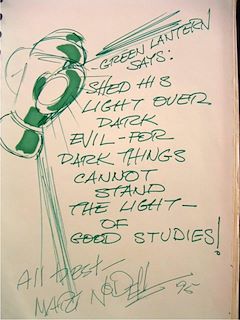 GREEN LANTERN
SAYS:
SHED HIS
LIGHT OVER
DARK
EVIL-FOR
DARK THINGS
CANNOT
STAND
THE LIGHT-
OF
GOOD STUDIES!
All Best-
MART NODELL 95